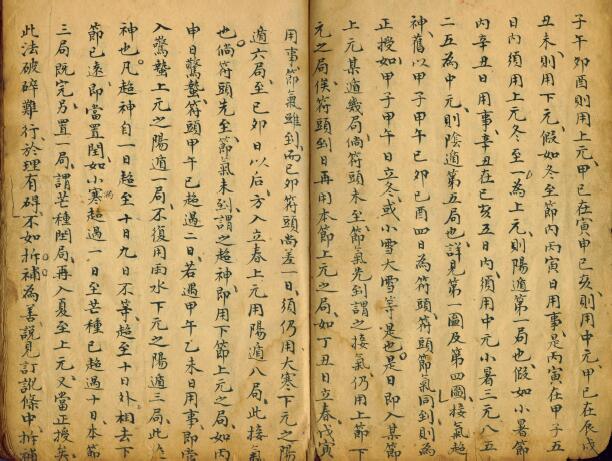 子午卯酉則用上元甲已在寅申已亥則用中元甲已在辰戌
丑未則用下元假如冬至節內丙寅日用事是丙寅在甲子五
日內須用上元冬至一為上元則陽遁第一局也假如小暑節
內辛丑日用事辛丑在已亥五日內須用中元小暑三元八五
二五為中元則陰遁第五局也詳見第一圖及第四圖接氣超
神舊以甲子甲午已卯已酉四日為符頭符頭節氣同到則為
正授如甲子甲午日立冬或小雪大雪等是也是日即入某節
上元某遁幾局倘符頭未至節氣先到謂之接氣仍用上節下
元之局俟符頭到日再用本節上元之局如丁丑日立春戊寅
用事節氣雖到而已卯符頭尚差一日須仍用大寒下元之陽
遁六局至已卯日以后方入立春上元用陽遁八局此接氣
也倘符頭先至節氣未到謂之超神即用下節上元之局如丙
申日驚蟄符頭甲午已超過二日若遇甲午乙未日用事即當
入驚蟄上元之陽遁一局不復用雨水下元之陽遁三局此
神也凡超神自一日超至十日九日不等超至十日外相去下
節已遠即當置閏如小寒超過一日至芒種已超過十日本節
三局既完另置一局謂芒種閏局再入夏至上元又當正授矣
此法破碎難行於理有碍不如拆補為善說見訂訛條中拆補